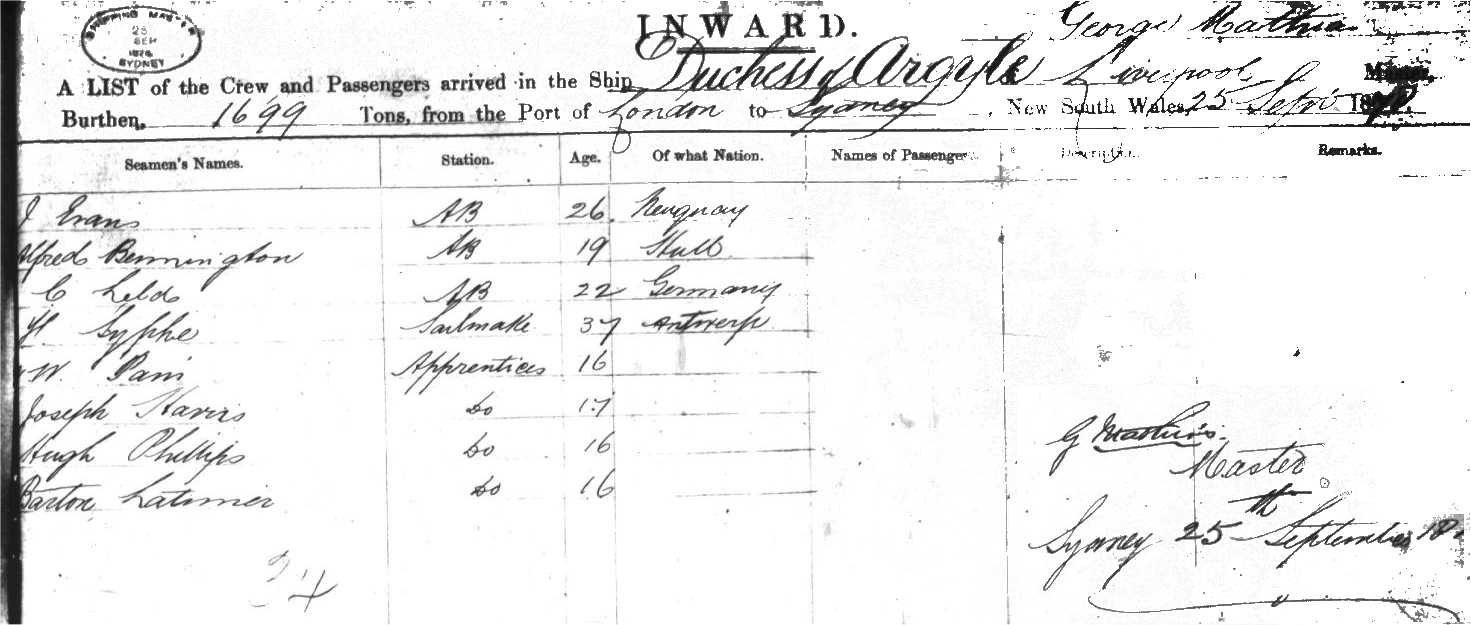 SHIPPING MASTER
25
SEP
1876
SYDNEY
INWARD.
George Mathias
A LIST of the Crew and Passengers arrived in the Ship Duchess of Argyle Liverpool Master,
Burthen, 1699 Tons, from the Port of London to Sydney, New South Wales, 25 Sept 18
Seamen's Names. Station. Age. Of what Nation. Names of Passengers Description. Remarks.
J Evans AB 26 Newquay
Alfred Bennington AB 19 Hull
C AB 22 Germany
H Sailmake 37 Antwerp
W. Apprentices 16
Joseph Harris Do 17
Hugh Phillips Do 16
Barton Latimer Do 16
G Mathias
Master
Sydney 25th September 18
34